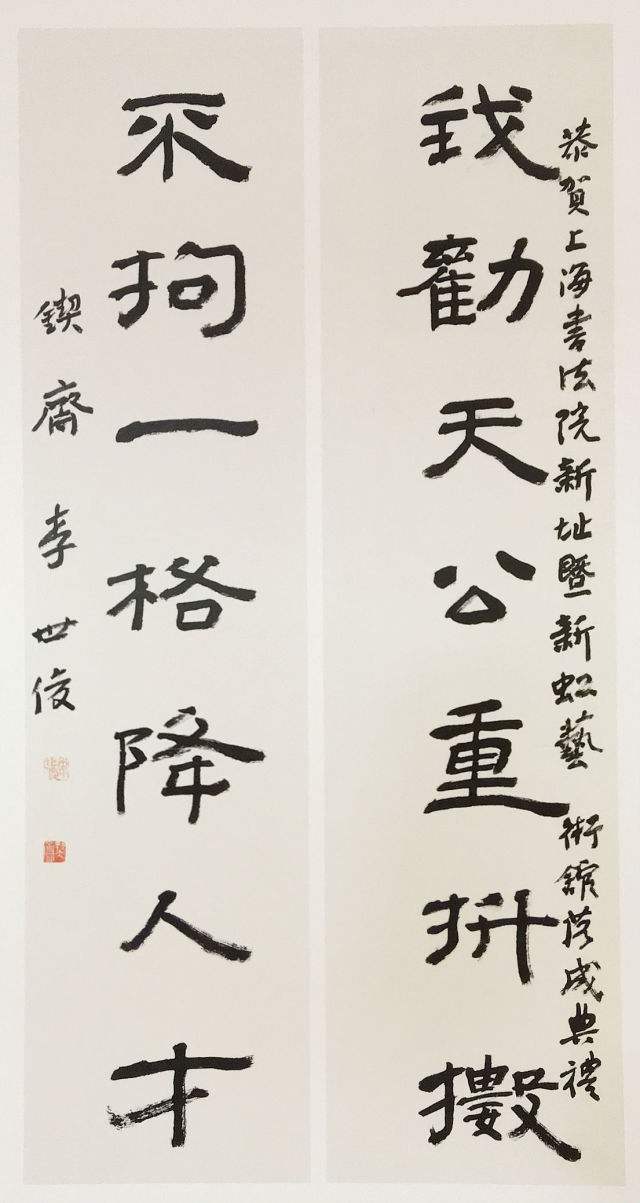 恭賀上海書法院新址暨新虹藝術館落成典禮
我勸天公重抖擻
不拘一格降人才
鍥齋 李世俊